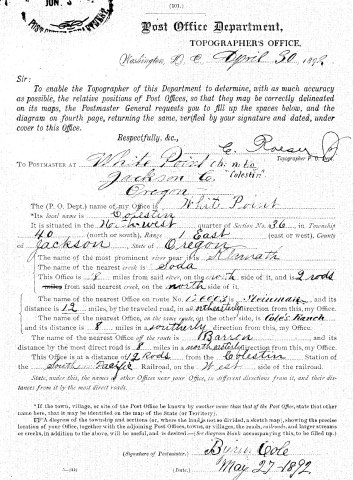 (101.)
JUN 3
Post Office Department,
TOPOGRAPHER'S OFFICE.
Washington, D. C. April 30, 1892
Sir:
To enable the Topographer of this Department to determine, with as much accuracy
as possible, the relative positions of Post Offices, so that they may be correctly delineated
on its maps, the Postmaster General requests you to fill up the spaces below, and the
diagram on fourth page, returning the same, verified by your signature and dated, under
cover to this Office.
Respectfully, &c.,
C. Roeser
Topographer P. O. Dept.
TO POSTMASTER AT White Point
"Colestin"
Jackson Co.
Oregon
The (P. O. Dept.) name of my Office is White Point
*Its local name is Colestin
It is situated in the N. West quarter of Section No. 36, in Township
40 (north or south), Range 1 East (east or west), County
of Jackson, State of Oregon
The name of the most prominent river near it is Klamath
The name of the nearest creek is Soda
This Office is 8 miles from said river, on the north side of it, and is 2 rods
miles from said nearest creek, on the north side of it.
The name of the nearest Office on route No. is Steinman, and its
distance is 12 miles, by the traveled road, in a northerly direction from this, my Office.
The name of the nearest Office, on the same route, on the other side, is Cole's Ranch
and its distance is 8 miles in a southerly direction from this, my Office.
The name of the nearest Office off the route is Barron and its
distance by the most direct road is 8 miles in a direction from this, my Office.
This Office is at a distance of 19 Rods from the Colestin Station of
the South Pacific Railroad, on the West side of the railroad.
State, under this, the names of other Offices near your Office, in different directions from it, and their dis-
tances from it by the most direct roads.
*If the town, village, or site of the Post Office be known by another name than that of the Post Office, state that other
name here, that it may be identified on the map of the State (or Territory).
A diagram of the township and sections (or, where the land is not so divided, a sketch map), showing the precise
location of your Office, together with the adjoining Post Offices, towns, or villages, the roads, railroads, and larger streams
or creeks, in addition to the above, will be useful, and is desired.
(Signature of Postmaster.) Byron Cole
(Date.) May 27 1892